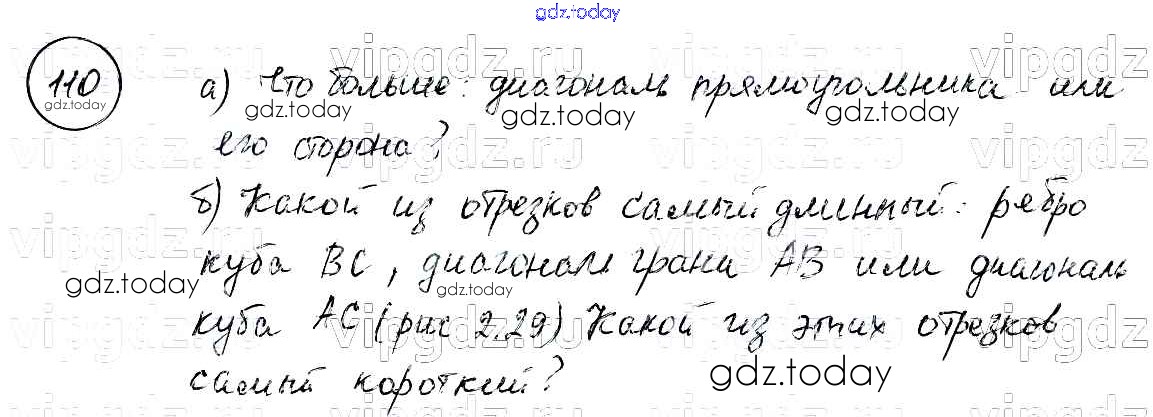 gdz.today
110
а) Что больше: диагональ прямоугольника или
его сторона?
б) Какой из отрезков самый длинный: ребро
куба BC, диагональ грани AB или диагональ
куба AC (рис 2.29) Какой из этих отрезков
самый короткий?
gdz.today
gdz.today
gdz.today
gdz.today
gdz.today
gdz.today
gdz.today
gdz.today
vipgdz.ru
vipgdz.ru
vipgdz.ru
vipgdz.ru